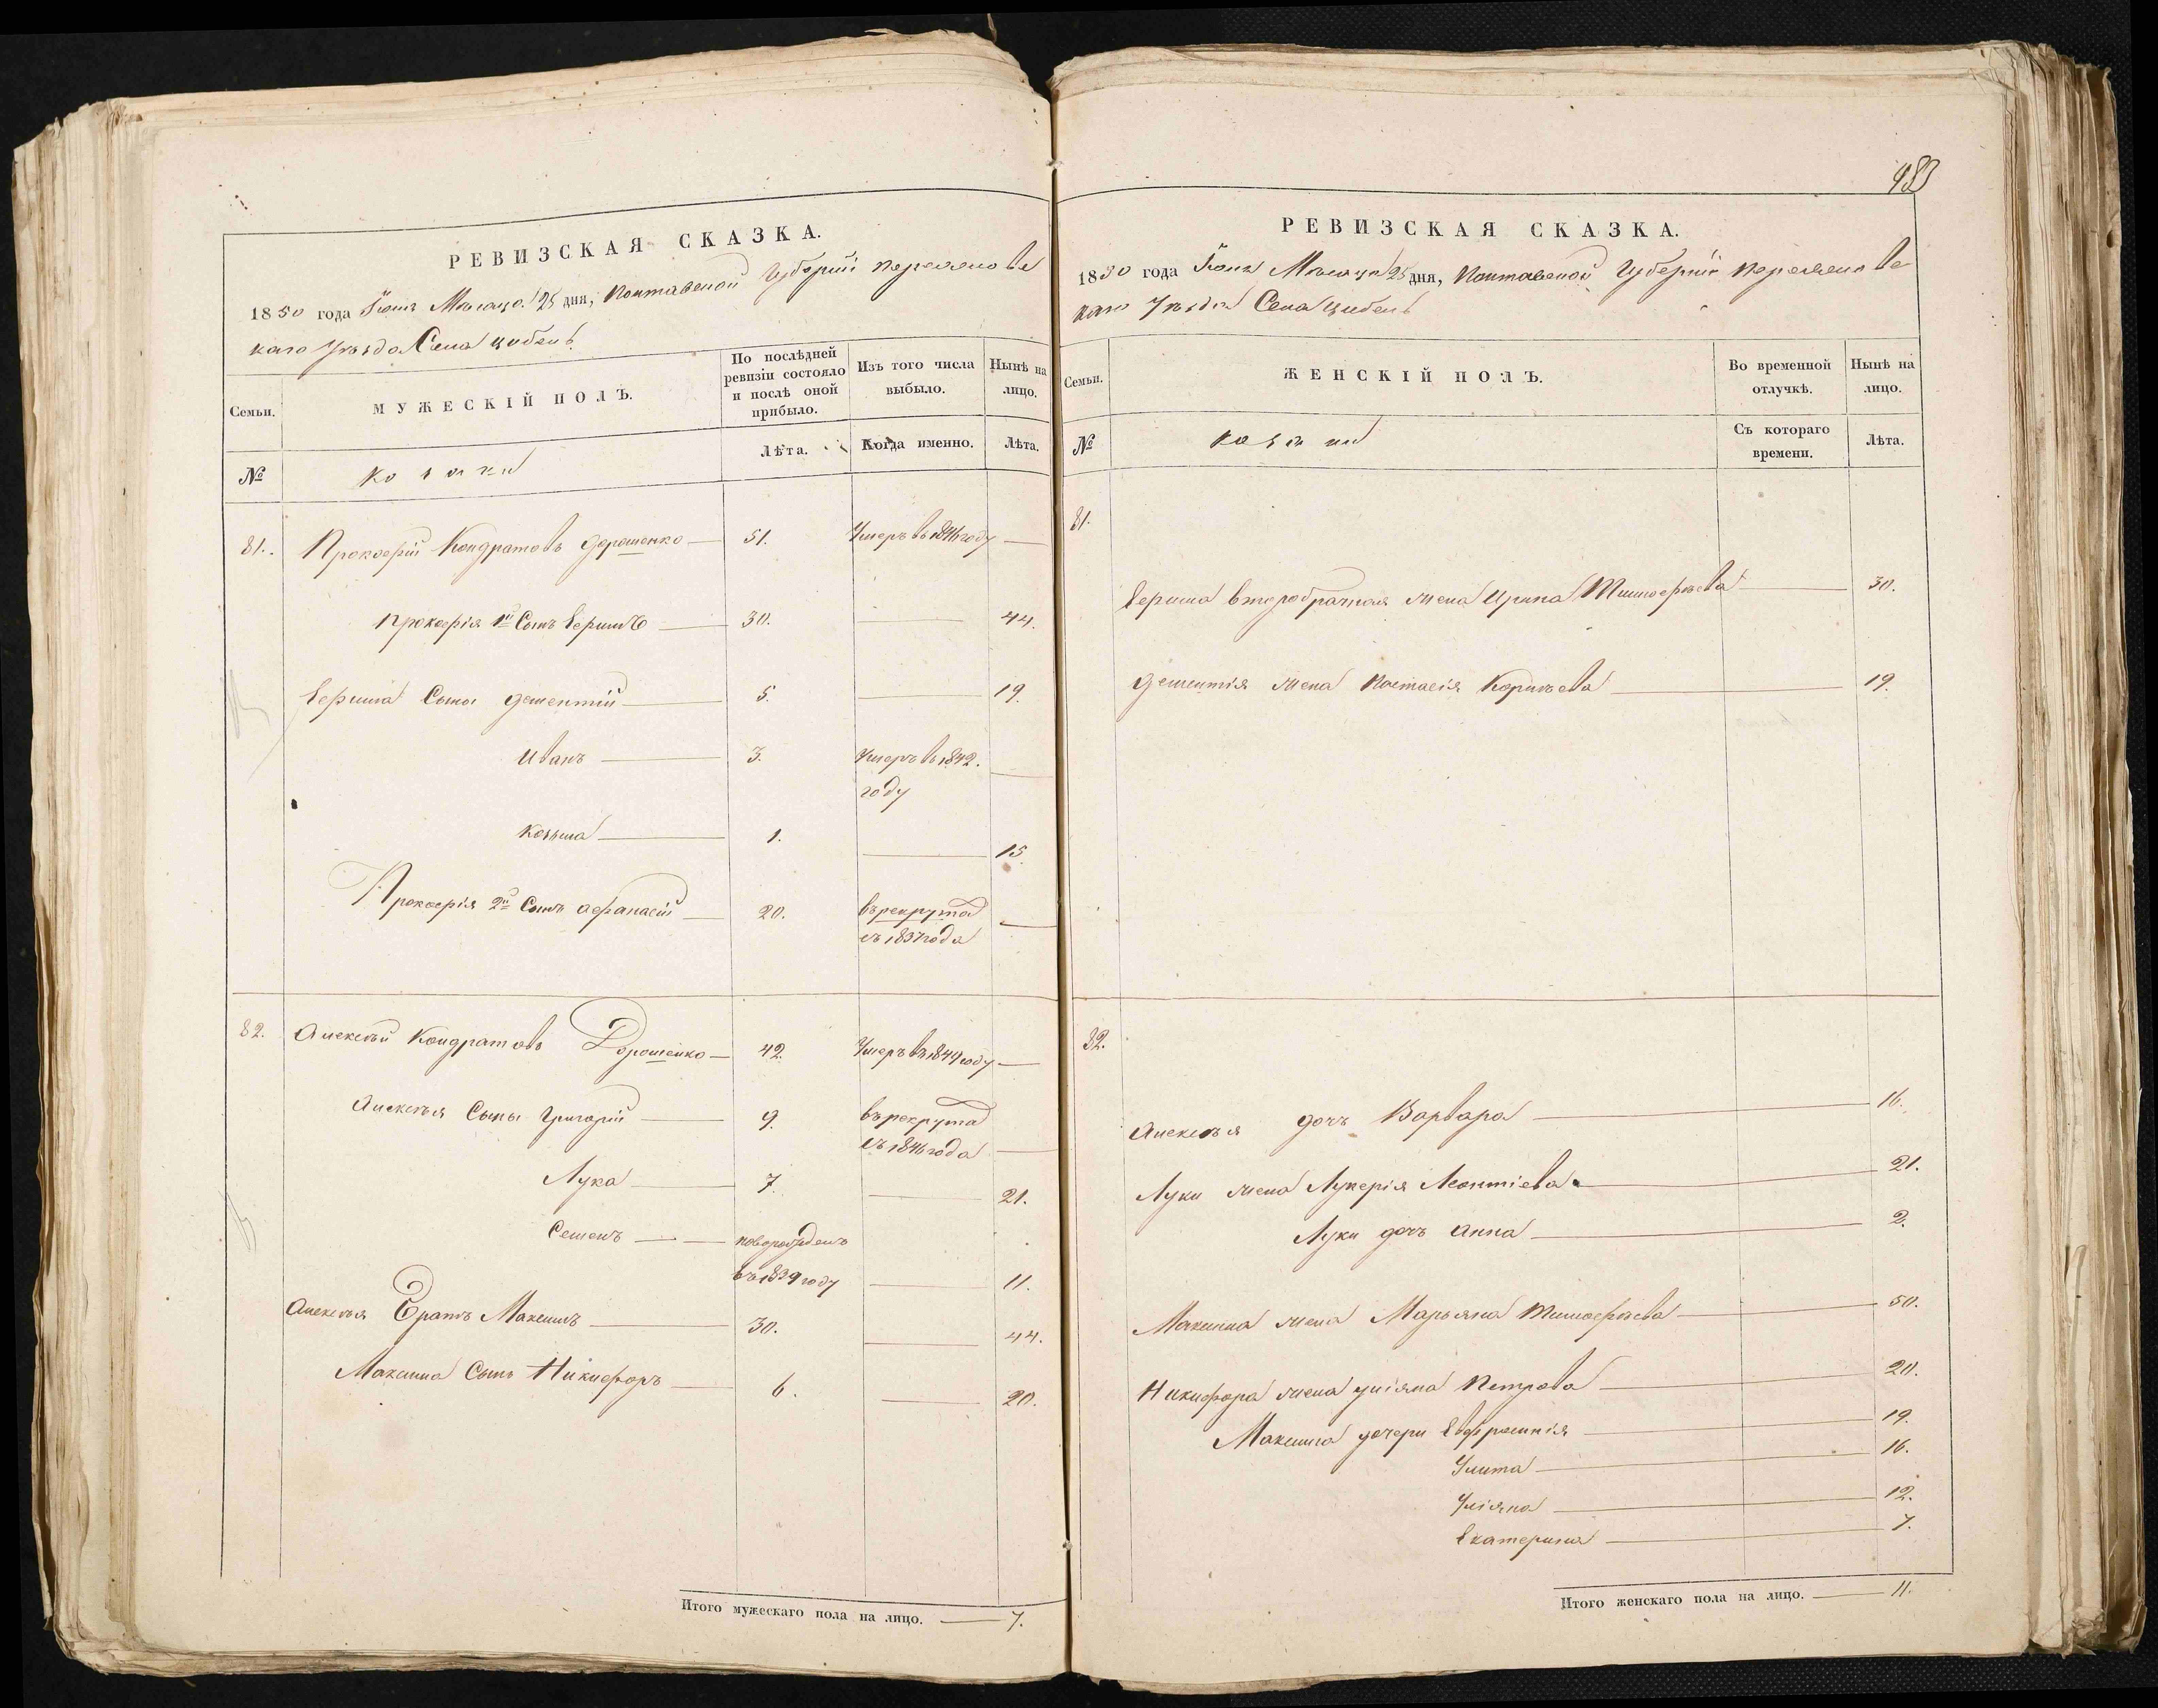 РЕВИЗСКАЯ СКАЗКА.
1850 года Іюня Мѣсяца 25 дня, Полтавской Губерніи Переяславс
каго Уѣзда Села Цибель
Семьи.
МУЖЕСКІЙ ПОЛЪ.
По послѣдней ревизіи состояло и послѣ оной прибыло.
Изъ того числа выбыло.
Нынѣ на лицо.
№
Козаки
Лѣта.
Когда именно.
Лѣта.
81. Прокофій Кондратовъ Дорошенко — 51. Умеръ въ 1846 году —
Прокофія 1й Сынъ Ефимъ — 30. — 44.
Ефима Сыны Дементій — 5. — 19.
Иванъ — 3. Умеръ въ 1842.
году —
Козьма — 1. — 15.
Прокофія 2й Сынъ Афанасій — 20. въ рекрутахъ —
съ 1837 года
82. Алексѣй Кондратовъ Дорошенко — 42. Умеръ въ 1849 году —
Алексѣя Сыны Григорій — 9. въ рекрутахъ
съ 1846 года —
Лука — 7. — 21.
Семенъ — новорожденъ
въ 1839 году — 11.
Алексѣя Братъ Максимъ — 30. — 44.
Максима Сынъ Никифоръ — 6. — 20.
Итого мужескаго пола на лицо. — 7.
983
РЕВИЗСКАЯ СКАЗКА.
1850 года Іюня Мѣсяца 25 дня, Полтавской Губерніи Переяславс
каго Уѣзда Села Цибель
Семьи.
ЖЕНСКІЙ ПОЛЪ.
Во временной отлучкѣ.
Нынѣ на лицо.
№
Козаки
Съ котораго времени.
Лѣта.
81.
Ефима второбрачная жена Ирина Тимофѣева — 30.
Дементія жена Настасія Корнѣева — 19.
82.
Алексѣя дочь Варвара — 16.
Луки жена Лукерія Леонтіева — 21.
Луки дочь Анна — 2.
Максима жена Марьяна Тимофѣева — 50.
Никифора жена Уліяна Петрова — 20.
Максима дочери Евфросинія — 19.
Улита — 16.
Уліяна — 12.
Екатерина — 7.
Итого женскаго пола на лицо. — 11.